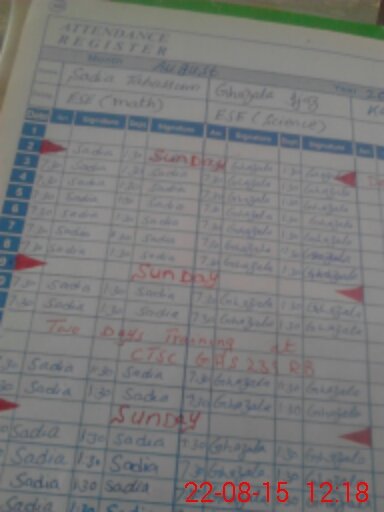 ATTENDANCE
REGISTER
Month August Year
Sadia Tabassum Ghazala
ESE (math) ESE (Science)
Date Arr. Signature Dept. Signature Arr. Signature Dept. Signature Arr.
1
2 Sunday
3 7.30 Sadia 1.30 Sadia 7.30 Ghazala 1.30 Ghazala
4 7.30 Sadia 1.30 Sadia 7.30 Ghazala 1.30 Ghazala
5 7.30 Sadia 1.30 Sadia 7.30 Ghazala 1.30 Ghazala
6 7.30 Sadia 1.30 Sadia 7.30 Ghazala 1.30 Ghazala
7 7.30 Sadia 1.30 Sadia 7.30 Ghazala 1.30 Ghazala
8 7.30 Sadia 1.30 Sadia 7.30 Ghazala 1.30 Ghazala
9 Sunday
7.30 Sadia 1.30 Sadia 7.30 Ghazala 1.30 Ghazala
7.30 Sadia 1.30 Sadia 7.30 Ghazala 1.30 Ghazala
Two Days Training at
CTSC GHS 239 RB
Sadia 1.30 Sadia 7.30 Ghazala 1.30 Ghazala
Sadia 1.30 Sadia 7.30 Ghazala 1.30 Ghazala
Sunday
Sadia 1.30 Sadia 7.30 Ghazala 1.30 Ghazala
Sadia 1.30 Sadia 7.30 Ghazala 1.30 Ghazala
Sadia 1.30 Sadia
22-08-15 12:18